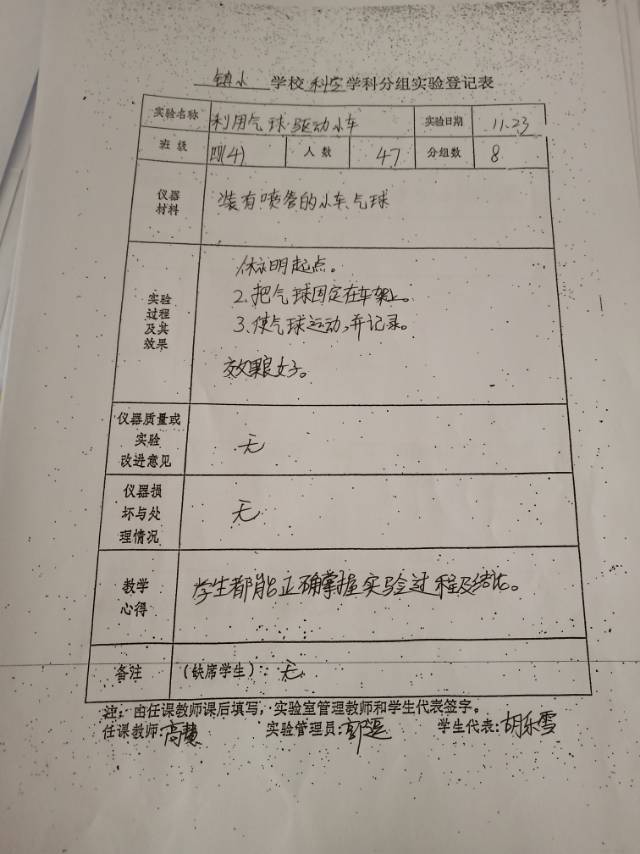 镇小 学校 科学 学科分组实验登记表
实验名称 利用气球驱动小车 实验日期 11.23
班级 四(4) 人数 47 分组数 8
仪器
材料
装有喷管的小车、气球
实验
过程
及其
效果
1.标明起点。
2.把气球固定在车架上。
3.使气球运动,并记录。
效果好。
仪器质量或
实验
改进意见
无
仪器损
坏与处
理情况
无
教学
心得
学生都能正确掌握实验过程及结论。
备注 (缺席学生):无
注:由任课教师课后填写,实验室管理教师和学生代表签字。
任课教师:高慧 实验管理员: 学生代表:胡乐雪